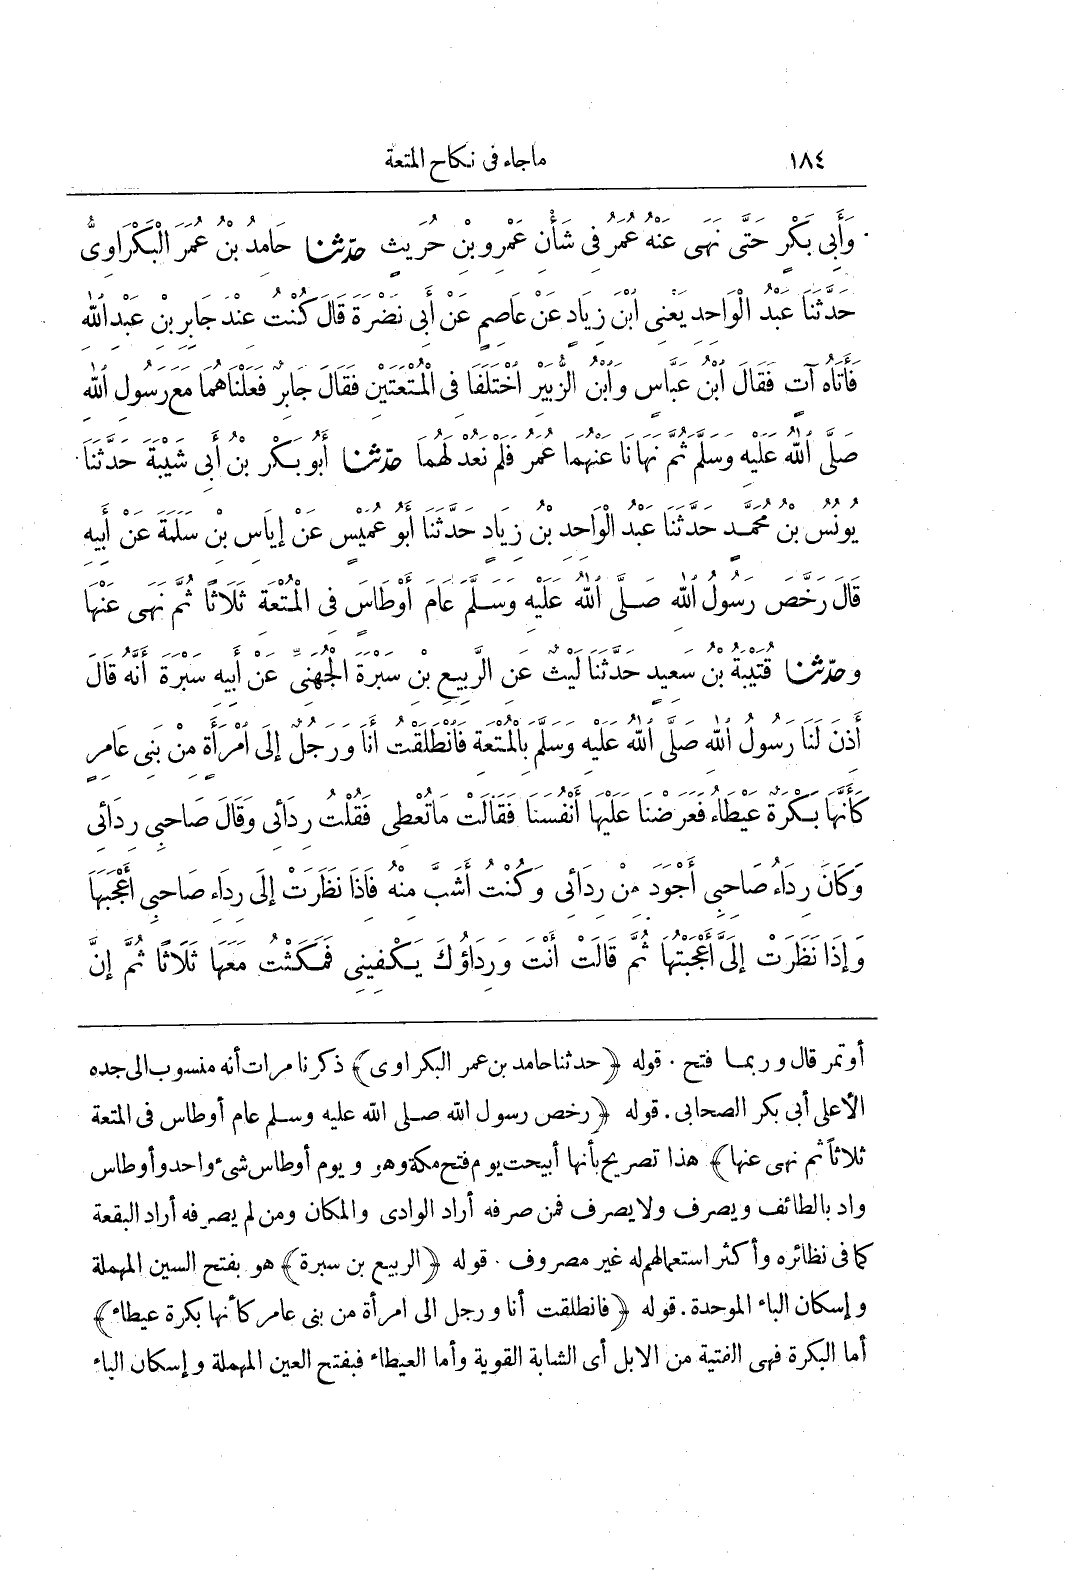 ١٨٤ ماجاء فى نكاح المتعة
وَأَبِى بَكْرٍ حَتَّى نَهَى عَنْهُ عُمَرُ فِى شَأْنِ عَمْرِو بْنِ حُرَيْثٍ حدثنا حَامِدُ بْنُ عُمَرَ الْبَكْرَاوِىُّ
حَدَّثَنَا عَبْدُ الْوَاحِدِ يَعْنِى ابْنَ زِيَادٍ عَنْ عَاصِمٍ عَنْ أَبِى نَضْرَةَ قَالَ كُنْتُ عِنْدَ جَابِرِ بْنِ عَبْدِ اللهِ
فَأَتَاهُ آتٍ فَقَالَ ابْنُ عَبَّاسٍ وَابْنُ الزُّبَيْرِ اخْتَلَفَا فِى الْمُتْعَتَيْنِ فَقَالَ جَابِرٌ فَعَلْنَاهُمَا مَعَ رَسُولِ اللهِ
صَلَّى اللهُ عَلَيْهِ وَسَلَّمَ ثُمَّ نَهَانَا عَنْهُمَا عُمَرُ فَلَمْ نَعُدْ لَهُمَا حدثنا أَبُو بَكْرِ بْنُ أَبِى شَيْبَةَ حَدَّثَنَا
يُونُسُ بْنُ مُحَمَّدٍ حَدَّثَنَا عَبْدُ الْوَاحِدِ بْنُ زِيَادٍ حَدَّثَنَا أَبُو عُمَيْسٍ عَنْ إِيَاسِ بْنِ سَلَمَةَ عَنْ أَبِيهِ
قَالَ رَخَّصَ رَسُولُ اللهِ صَلَّى اللهُ عَلَيْهِ وَسَلَّمَ عَامَ أَوْطَاسَ فِى الْمُتْعَةِ ثَلَاثًا ثُمَّ نَهَى عَنْهَا
وحدثنا قُتَيْبَةُ بْنُ سَعِيدٍ حَدَّثَنَا لَيْثٌ عَنِ الرَّبِيعِ بْنِ سَبْرَةَ الْجُهَنِىِّ عَنْ أَبِيهِ سَبْرَةَ أَنَّهُ قَالَ
أَذِنَ لَنَا رَسُولُ اللهِ صَلَّى اللهُ عَلَيْهِ وَسَلَّمَ بِالْمُتْعَةِ فَانْطَلَقْتُ أَنَا وَرَجُلٌ إِلَى امْرَأَةٍ مِنْ بَنِى عَامِرٍ
كَأَنَّهَا بَكْرَةٌ عَيْطَاءُ فَعَرَضْنَا عَلَيْهَا أَنْفُسَنَا فَقَالَتْ مَا تُعْطِى فَقُلْتُ رِدَائِى وَقَالَ صَاحِبِى رِدَائِى
وَكَانَ رِدَاءُ صَاحِبِى أَجْوَدَ مِنْ رِدَائِى وَكُنْتُ أَشَبَّ مِنْهُ فَإِذَا نَظَرَتْ إِلَى رِدَاءِ صَاحِبِى أَعْجَبَهَا
وَإِذَا نَظَرَتْ إِلَىَّ أَعْجَبْتُهَا ثُمَّ قَالَتْ أَنْتَ وَرِدَاؤُكَ يَكْفِينِى فَمَكَثْتُ مَعَهَا ثَلَاثًا ثُمَّ إِنَّ
أو تمر قال وربما فتح. قوله ﴿حدثنا حامد بن عمر البكراوى﴾ ذكرنا مرات أنه منسوب الى جده
الأعلى أبى بكر الصحابى. قوله ﴿رخص رسول الله صلى الله عليه وسلم عام أوطاس فى المتعة
ثلاثاً ثم نهى عنها﴾ هذا تصريح بأنها أبيحت يوم فتح مكة وهو ويوم أوطاس شىء واحد وأوطاس
واد بالطائف ويصرف ولا يصرف فمن صرفه أراد الوادى والمكان ومن لم يصرفه أراد البقعة
كما فى نظائره وأكثر استعمالهم له غير مصروف. قوله ﴿الربيع بن سبرة﴾ هو بفتح السين المهملة
وإسكان الباء الموحدة. قوله ﴿فانطلقت أنا ورجل الى امرأة من بنى عامر كأنها بكرة عيطاء﴾
أما البكرة فهى الفتية من الابل أى الشابة القوية وأما العيطاء فبفتح العين المهملة وإسكان الياء